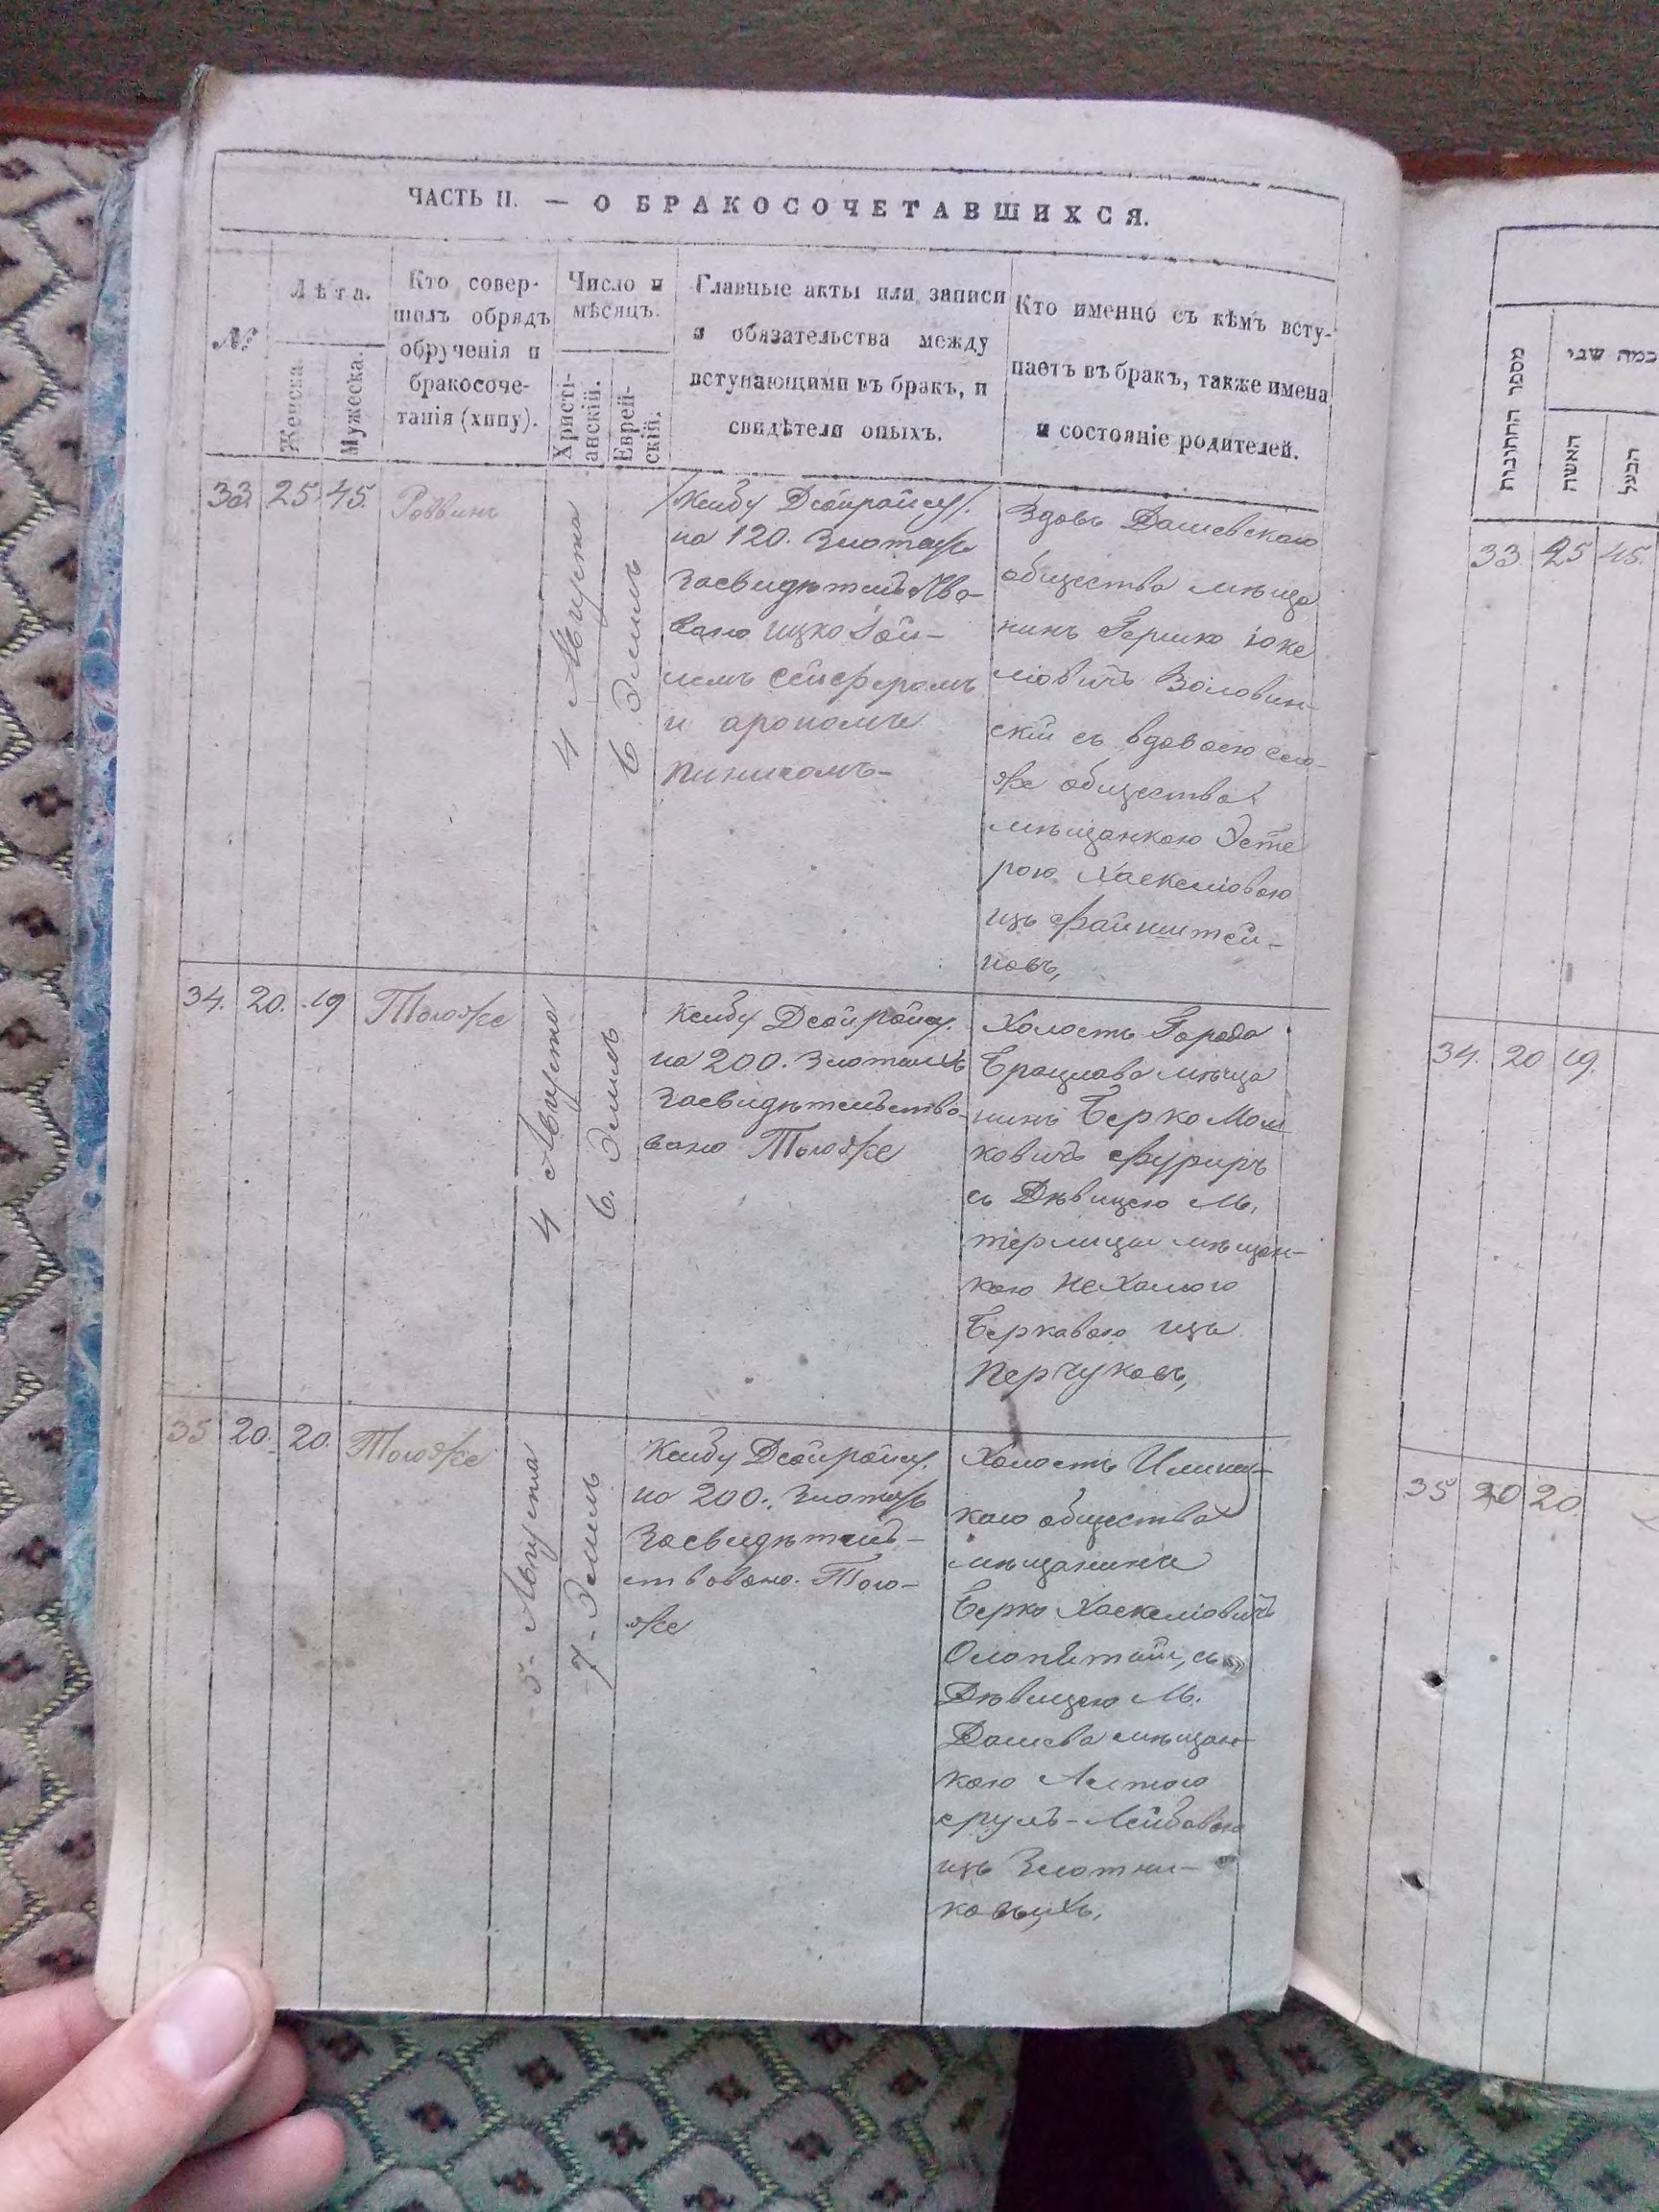 ЧАСТЬ II. — О БРАКОСОЧЕТАВШИХСЯ.
№
Лѣта.
Женска.
Мужеска.
Кто совер-
шалъ обрядъ
обрученія и
бракосоче-
танія (хипу).
Число и
мѣсяцъ.
Христі-
анскій.
Еврей-
скій.
Главные акты или записи
и обязательства между
вступающими въ бракъ, и
свидѣтели оныхъ.
Кто именно съ кѣмъ всту-
паетъ въ бракъ, также имена
и состояніе родителей.
33 25. 45. Раввинъ
4 Августа
6. Элиль
на 120. Злотыхъ
Засвидѣтельство-
вано Ицко
и арономъ
Здовъ Дашевскаго
общества мѣща
нинъ Гершко Іоке
ліовичъ Воловин-
скій съ вдовою сего-
же общества
мѣщанкою Эсте
рою Хаскеліовою
изъ Файнштей-
новъ,
34. 20. 19 Тогоже
4 Августа
6. Элиль
на 200. Злотыхъ
Засвидѣтельство-
вано Тогоже
Холостъ Города
Брацлава мѣща
нинъ Берко Мош
ковичъ Фуриръ
съ Дѣвицею М.
терлицы мѣщан-
кою Нехамою
Берковою изъ
Перчуковъ,
35 20. 20. Тогоже
5 - Августа
7 - Элиль
на 200. Злотыхъ
Засвидѣтель-
ствовано. Того-
же
Холостъ
каго общества
мѣщанинъ
Берко Хаскеліовичъ
съ
Дѣвицею М.
Дашева мѣщан-
кою
сруль-Лейбовою
изъ Злотни-
ковыхъ,
מספר החתונות
כמה שני
האשה
הבעל
33 25 45.
34. 20 19.
35 20 20.